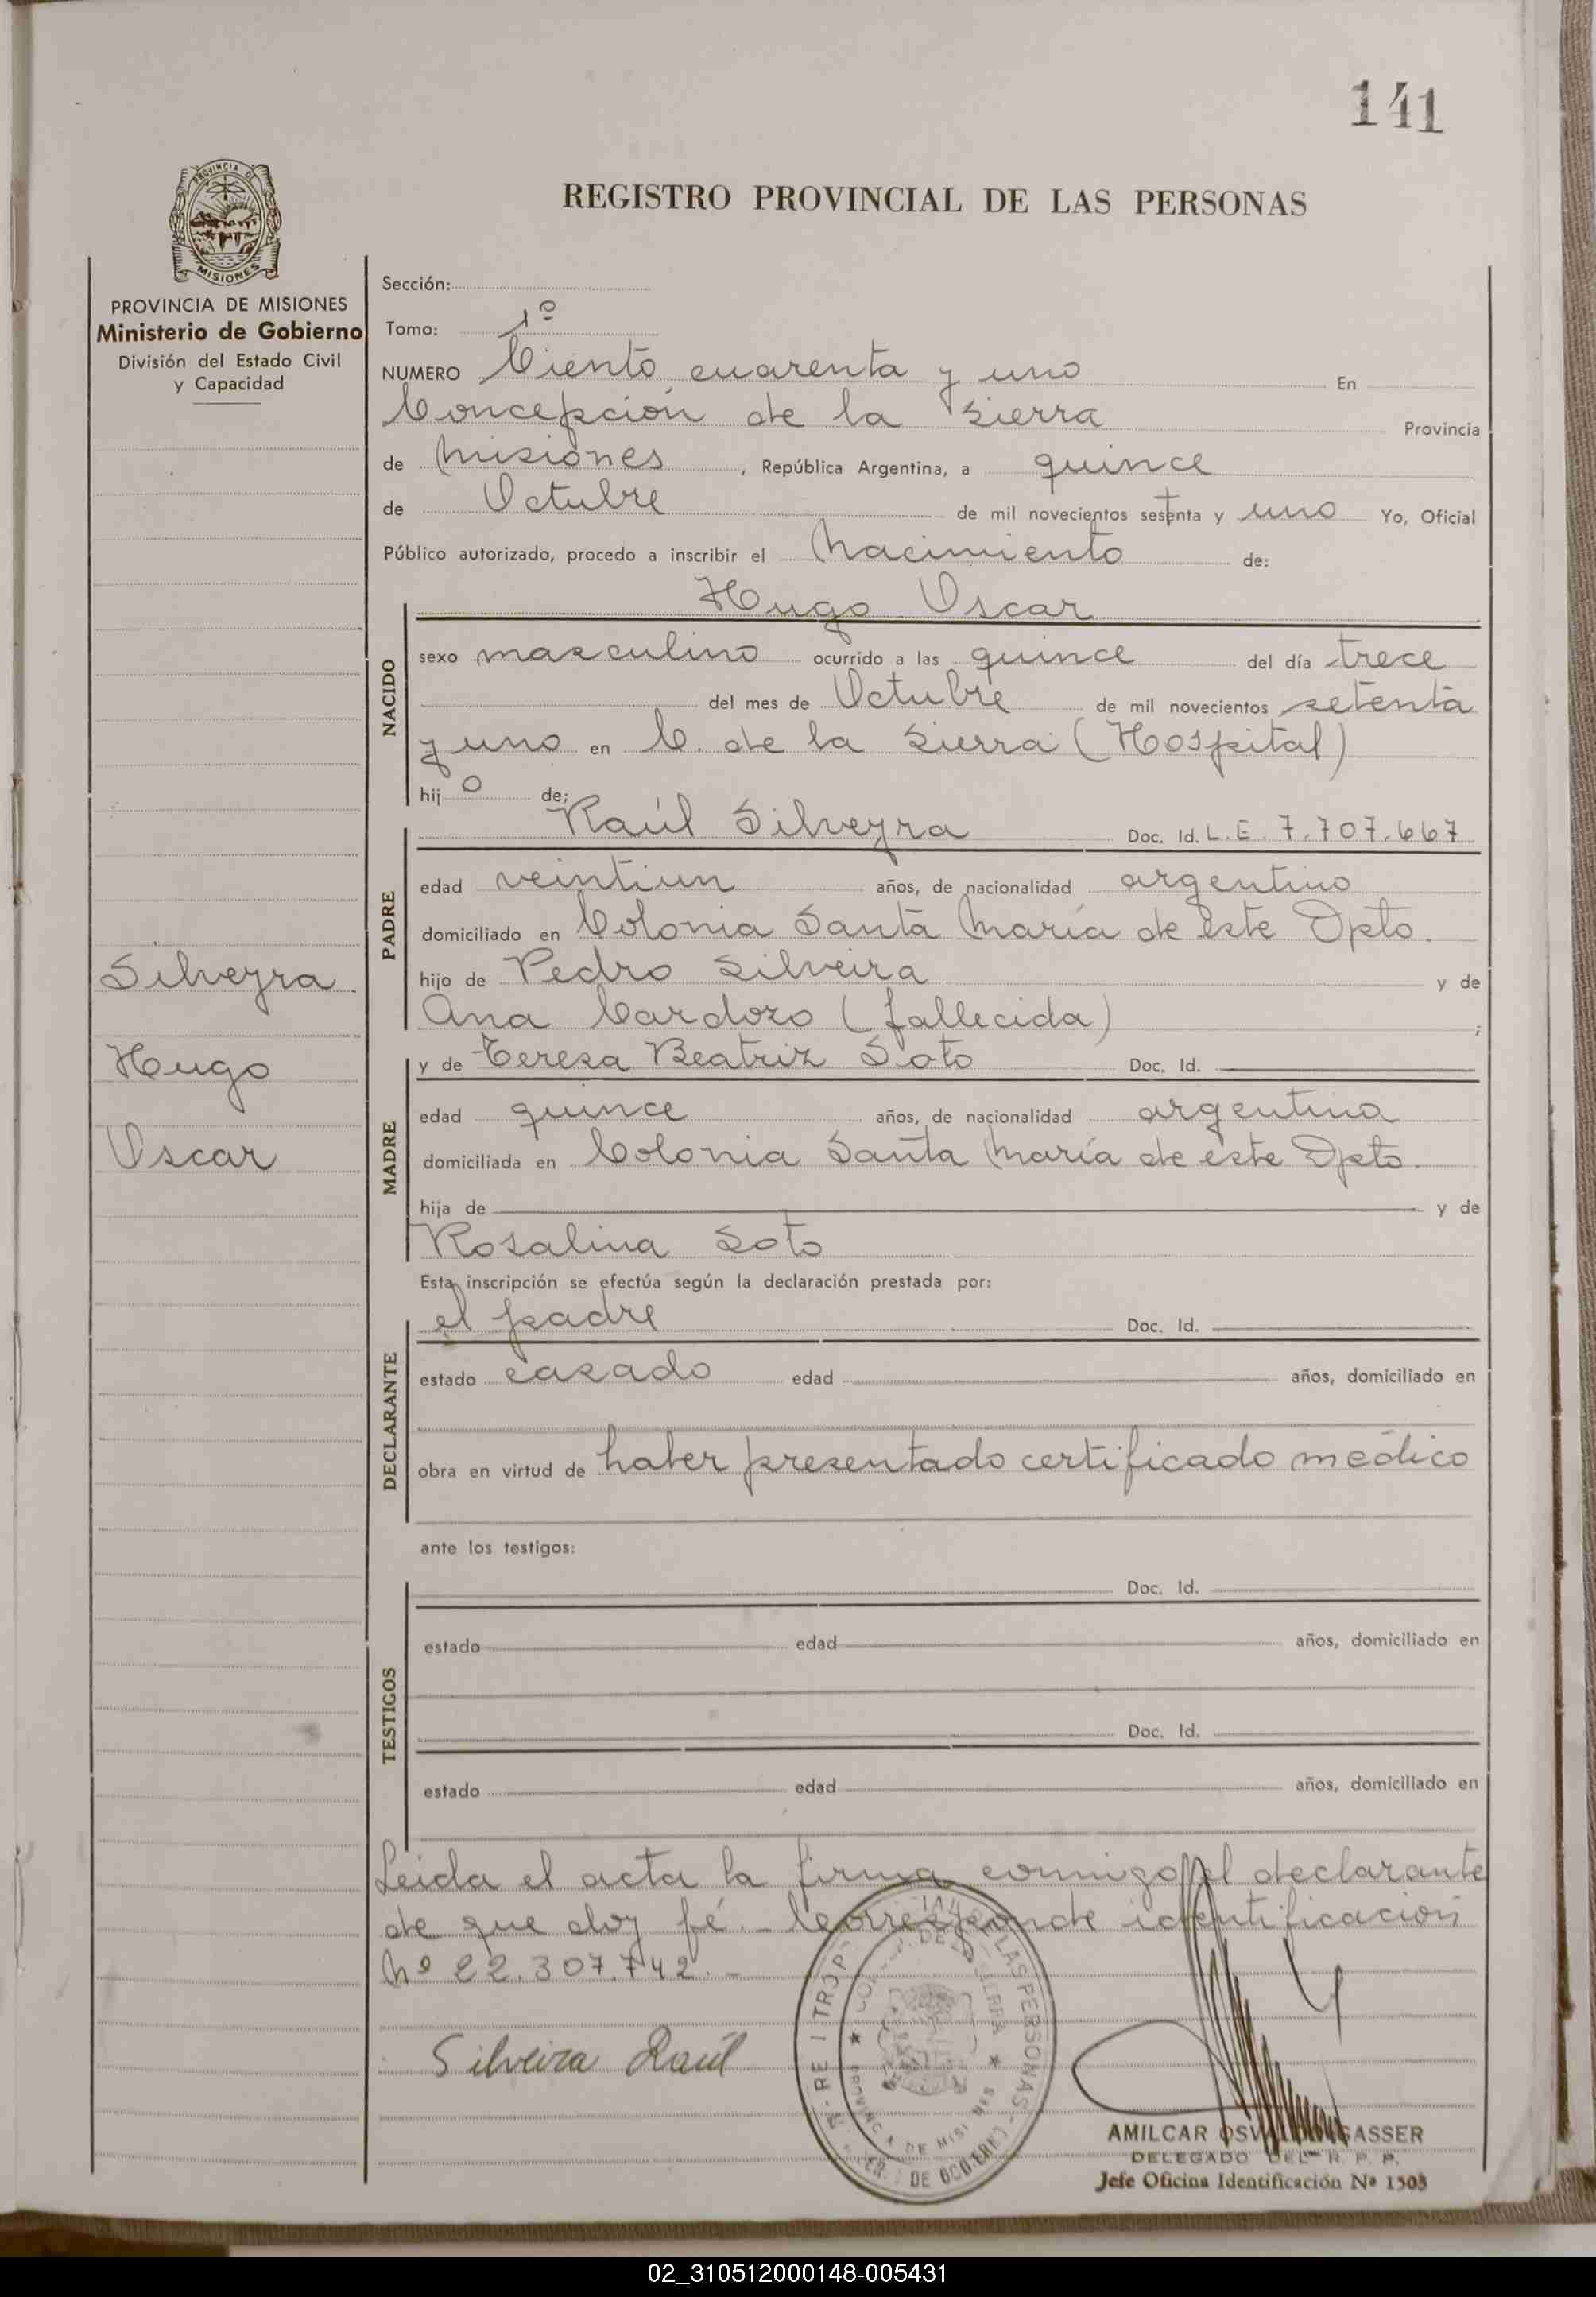 141
REGISTRO PROVINCIAL DE LAS PERSONAS
PROVINCIA DE MISIONES
Ministerio de Gobierno
División del Estado Civil
y Capacidad
Silveyra
Hugo
Oscar
Sección:
Tomo: 1º
NUMERO Ciento cuarenta y uno En
Concepción de la Sierra Provincia
de Misiones, República Argentina, a quince
de Octubre de mil novecientos setenta y uno Yo, Oficial
Público autorizado, procedo a inscribir el Nacimiento de:
Hugo Oscar
NACIDO
sexo masculino ocurrido a las quince del día trece
del mes de Octubre de mil novecientos setenta
y uno en C. de la Sierra (Hospital)
hijo de:
Raúl Silveyra Doc. Id. L.E. 7.707.667
PADRE
edad veintiun años, de nacionalidad argentino
domiciliado en Colonia Santa María de este Dpto.
hijo de Pedro Silveira y de
Ana Cardozo (fallecida) ;
y de Teresa Beatriz Soto Doc. Id.
MADRE
edad quince años, de nacionalidad argentina
domiciliada en Colonia Santa María de este Dpto.
hija de y de
Rosalina Soto
Esta inscripción se efectúa según la declaración prestada por:
el padre Doc. Id.
DECLARANTE
estado casado edad años, domiciliado en
obra en virtud de haber presentado certificado médico
ante los testigos:
Doc. Id.
TESTIGOS
estado edad años, domiciliado en
Doc. Id.
estado edad años, domiciliado en
Leida el acta la firma conmigo el declarante
de que doy fé.- Corresponde identificación
Nº 22.307.742.-
Silveira Raúl
AMILCAR GASSER
DELEGADO DEL R. P. P.
Jefe Oficina Identificación Nº 1303
02_310512000148-005431